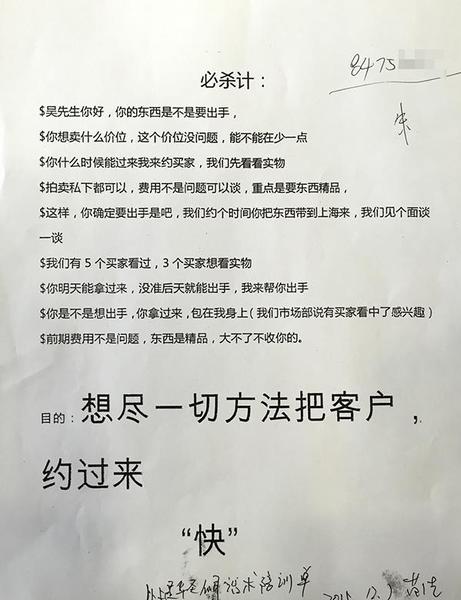 8475
朱
必杀计：
$吴先生你好，你的东西是不是要出手，
$你想卖什么价位，这个价位没问题，能不能在少一点
$你什么时候能过来我来约买家，我们先看看实物
$拍卖私下都可以，费用不是问题可以谈，重点是要东西精品，
$这样，你确定要出手是吧，我们约个时间你把东西带到上海来，我们见个面谈
一谈
$我们有 5 个买家看过，3 个买家想看实物
$你明天能拿过来，没准后天就能出手，我来帮你出手
$你是不是想出手，你拿过来，包在我身上（我们市场部说有买家看中了感兴趣）
$前期费用不是问题，东西是精品，大不了不收你的。
目的：想尽一切方法把客户，
约过来
“快”
话术培训单